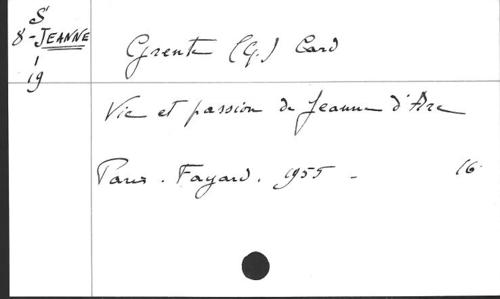 S
8-JEANNE
1
19
Grente (G.) Card
Vie et passion de Jeanne d'Arc
Paris. Fayard. 1955 - 16